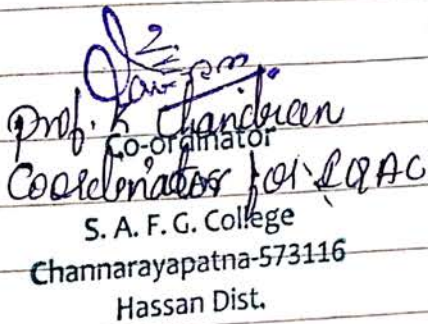 Prof. K
Co-ordinator
Coordinator for IQAC
S. A. F. G. College
Channarayapatna-573116
Hassan Dist.